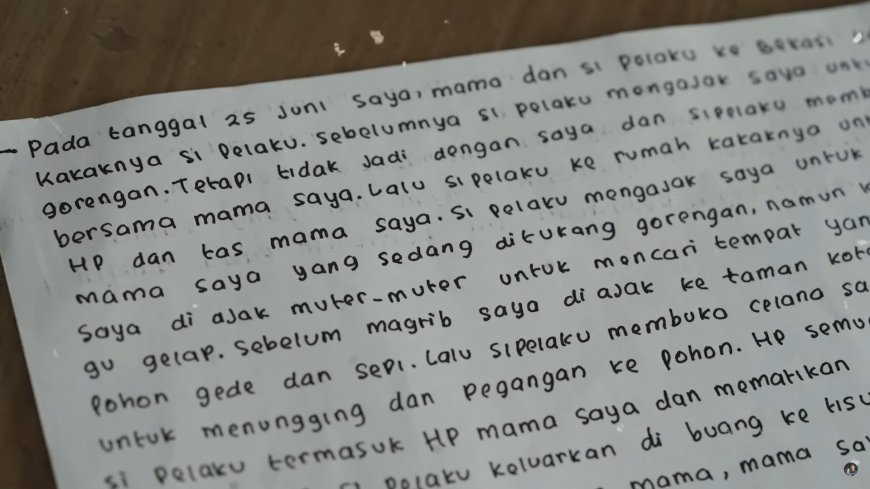 - Pada tanggal 25 Juni saya, mama dan si pelaku ke Bekasi
kakaknya si pelaku. Sebelumnya si pelaku mengajak saya
gorengan. Tetapi tidak jadi dengan saya dan sipelaku
bersama mama saya. Lalu si pelaku ke rumah kakaknya
HP dan tas mama saya. Si pelaku mengajak saya untuk
mama saya yang sedang ditukang gorengan, namun
saya di ajak muter-muter untuk mencari tempat
gu gelap. Sebelum magrib saya di ajak ke taman
pohon gede dan sepi. Lalu sipelaku membuka celana
untuk menungging dan pegangan ke pohon. HP
si pelaku termasuk HP mama saya dan mematikan
pelaku keluarkan di buang ke
mama, mama